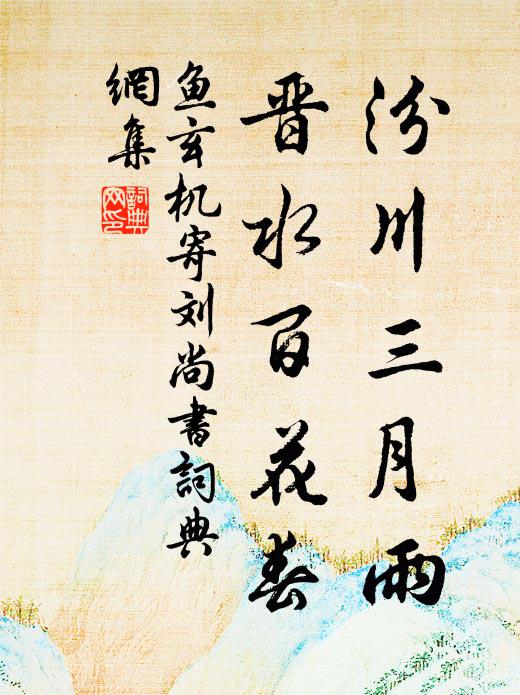 汾川三月雨
晋水百花春
鱼玄机寄刘尚书词典
網集
詞典
网印